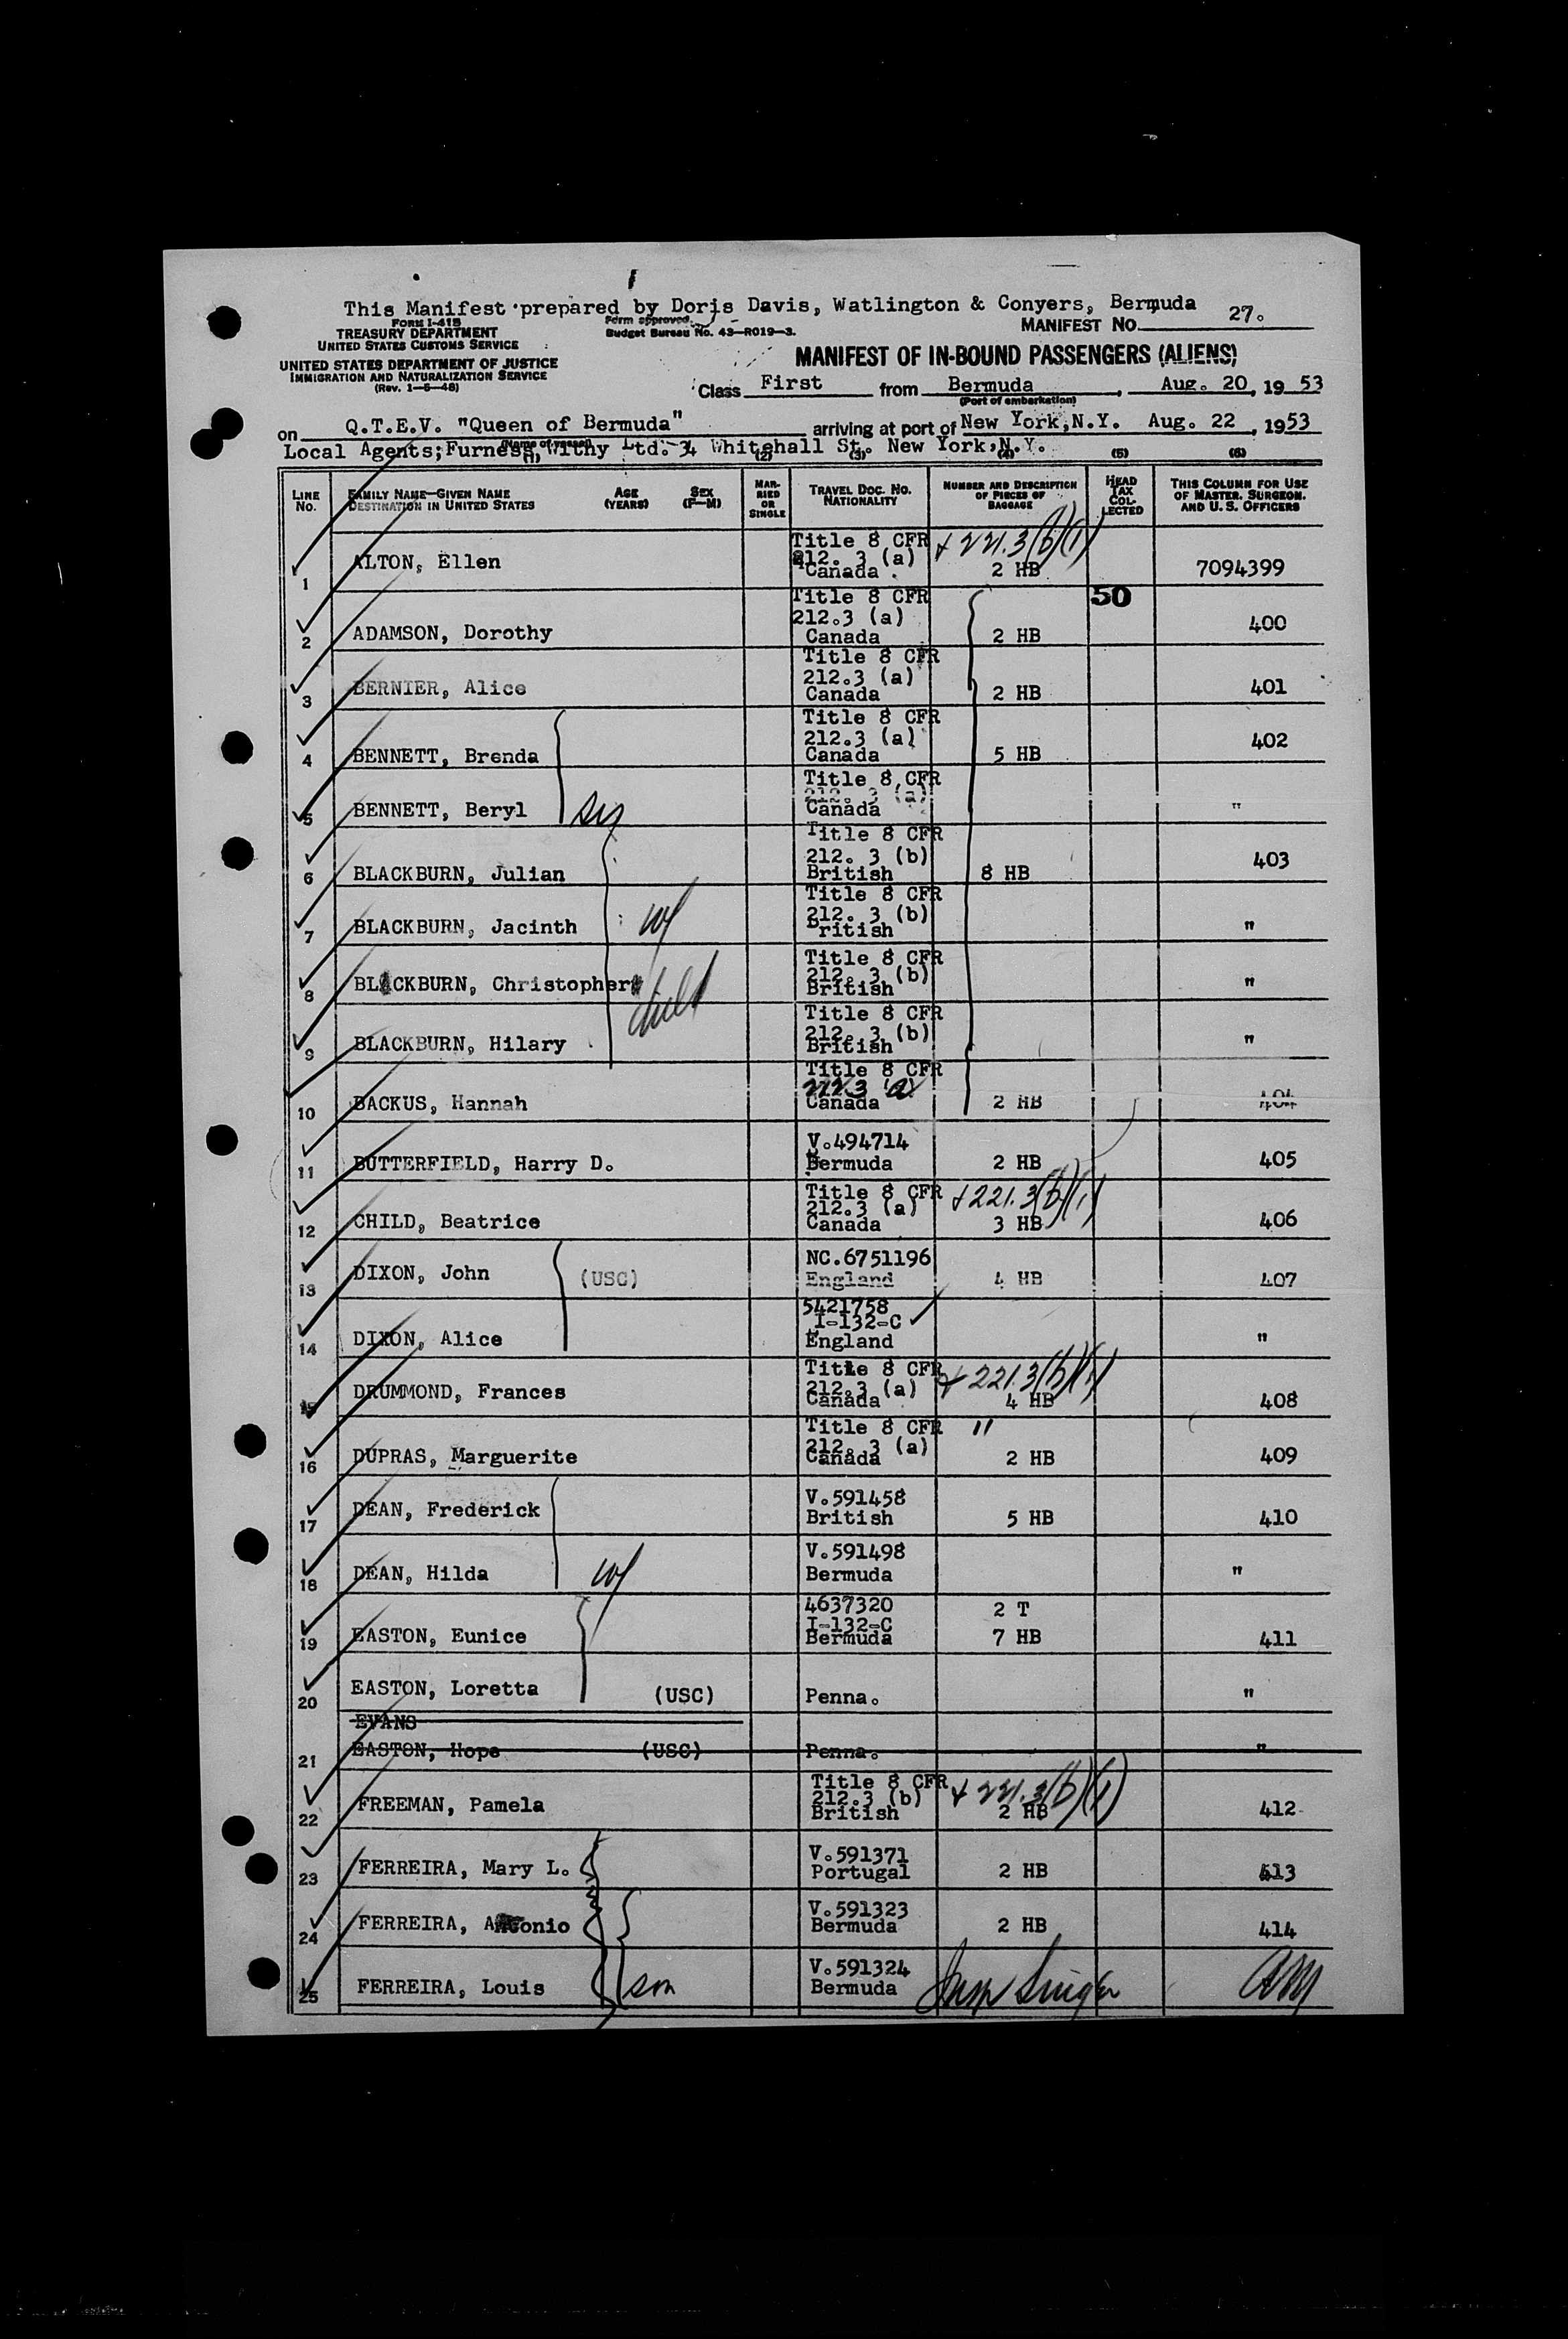 This Manifest prepared by Doris Davis, Watlington & Conyers, Bermuda
FORM I-415
TREASURY DEPARTMENT
UNITED STATES CUSTOMS SERVICE
Form approved.
Budget Bureau No. 43-R019-3.
MANIFEST NO. 27.
UNITED STATES DEPARTMENT OF JUSTICE
IMMIGRATION AND NATURALIZATION SERVICE
(Rev. 1-5-48)
MANIFEST OF IN-BOUND PASSENGERS (ALIENS)
Class First from Bermuda, Aug. 20, 1953
(Port of embarkation)
on Q.T.E.V. "Queen of Bermuda" arriving at port of New York, N.Y. Aug. 22, 1953
(Name of vessel)
Local Agents; Furness, Withy Ltd. 34 Whitehall St. New York, N.Y.
(1) (2) (3) (4) (5) (6)
LINE No. FAMILY NAME—GIVEN NAME DESTINATION IN UNITED STATES AGE (YEARS) SEX (F—M) MARRIED OR SINGLE TRAVEL DOC. NO. NATIONALITY NUMBER AND DESCRIPTION OF PIECES OF BAGGAGE HEAD TAX COLLECTED THIS COLUMN FOR USE OF MASTER, SURGEON, AND U. S. OFFICERS
1 ALTON, Ellen Title 8 CFR 212. 3 (a) Canada + 221.3(b)(1) 2 HB 7094399
50
2 ADAMSON, Dorothy Title 8 CFR 212.3 (a) Canada 2 HB 400
3 BERNIER, Alice Title 8 CFR 212.3 (a) Canada 2 HB 401
4 BENNETT, Brenda Title 8 CFR 212.3 (a) Canada 5 HB 402
5 BENNETT, Beryl Title 8 CFR 212. 3 (a) Canada "
6 BLACKBURN, Julian Title 8 CFR 212. 3 (b) British 8 HB 403
7 BLACKBURN, Jacinth w/ Title 8 CFR 212. 3 (b) British "
8 BLACKBURN, Christopher Title 8 CFR 212. 3 (b) British "
child
9 BLACKBURN, Hilary Title 8 CFR 212. 3 (b) British "
10 BACKUS, Hannah Title 8 CFR 212.3 (a) Canada 2 HB 404
11 BUTTERFIELD, Harry D. V.494714 Bermuda 2 HB 405
12 CHILD, Beatrice Title 8 CFR 212.3 (a) Canada + 221.3(b)(1) 3 HB 406
13 DIXON, John (USC) NC.6751196 England 4 HB 407
14 DIXON, Alice 5421758 I-132-C England "
15 DRUMMOND, Frances Title 8 CFR 212.3 (a) Canada + 221.3(b)(1) 4 HB 408
16 DUPRAS, Marguerite Title 8 CFR 212. 3 (a) Canada " 2 HB 409
17 DEAN, Frederick V.591458 British 5 HB 410
18 DEAN, Hilda w/ V.591498 Bermuda "
19 EASTON, Eunice 4637320 I-132-C Bermuda 2 T 7 HB 411
20 EASTON, Loretta (USC) Penna. "
EVANS
21 EASTON, Hope (USC) Penna. "
22 FREEMAN, Pamela Title 8 CFR 212.3 (b) British + 221.3(b)(1) 2 HB 412
23 FERREIRA, Mary L. V.591371 Portugal 2 HB 413
24 FERREIRA, Antonio V.591323 Bermuda 2 HB 414
25 FERREIRA, Louis son V.591324 Bermuda